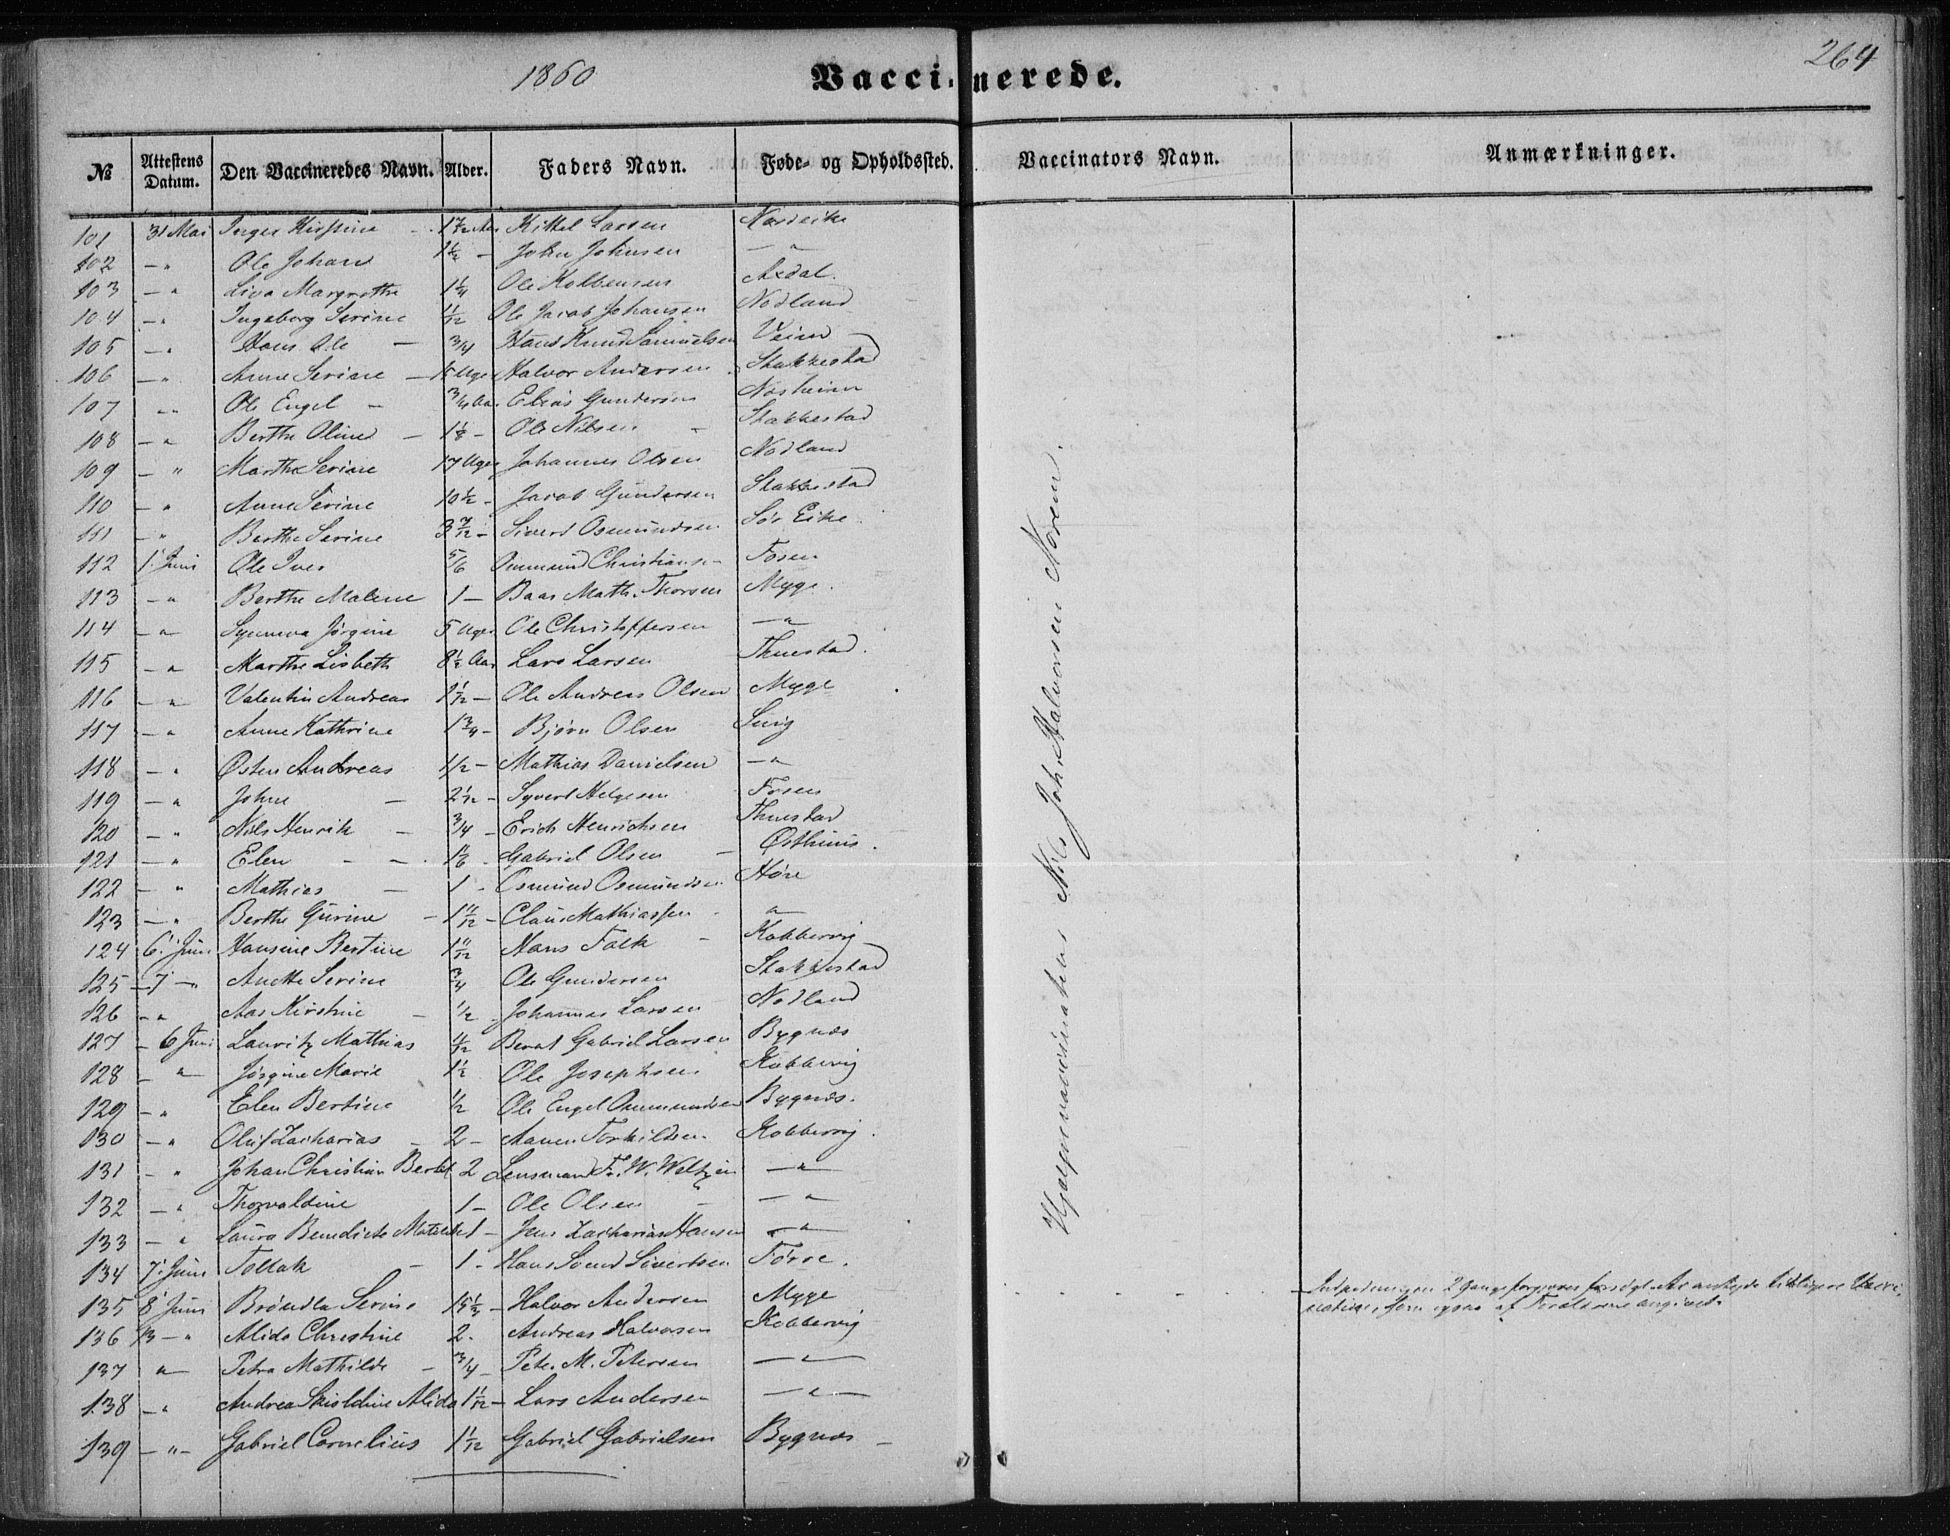 1860 Vaccinerede. 264
№ Attestens Datum. Den Vaccineredes Navn. Alder. Faders Navn. Føde- og Opholdssted. Vaccinators Navn. Anmærkninger.
101 31 Mai Inger Kirstine - 1 7/12 Aar Kittel Larsen Nordeike
102 - " Ole Johan 1 1/2 - John Johnsen - " -
103 - " Liva Margrethe 1 1/4 Ole Kolbensen Axdal.
104 - " Ingeborg Serine 11/12 Ole Jacob Johansen Nodland
105 - " Hans Ole - 3/4 Hans Knud Samuelsen Veien
106 - " Anne Serine - Uger Halvor Andersen Stakkestad
107 - " Ole Engel - 3/4 Aar. Elias Gundersen Nosheim
108 - " Berthe Oline - Ole Nilsen - Stakkestad
109 - " Marthe Serine 17 Uger Johannes Olsen Nodland
110 - " Anne Serine 10 1/2 - Jacob Gundersen Stakkestad
111 - " Berthe Serine 3 7/12 - Sivert Osmundsen Sør Eike.
112 1. Juni Ole Iver 5/6 Ommund Christians- Fosen
113 - " Berthe Malene 1 - Baar Math. Thorsen Myge.
114 - " Synneva Jørgine 5 Uger Ole Christoffersen - " -
115 - " Marthe Lisbeth 8 1/2 Aar Lars Larsen Thuestad.
116 - " Valentin Andreas 1 1/12 - Ole Andreas Olsen Myge
117 - " Anne Kathrine 1 3/4 - Bjørn Olsen Snig
118 - " Østen Andreas 1/2 - Mathias Danielsen - "
119 - " John - 2 1/12 - Syvert Helgesen Fosen
120 - " Nils Henrik - 3/4 - Erich Henrichsen Thuestad
121 - " Elen - - 1 1/6 - Gabriel Olsen - Østhuus.
122 - " Mathias - 1 - Osmund Osmundsen Høie
123 - " Berthe Gurine - 1 11/12 - Claus Mathiassen - "
124 6. Juni Hansine Bertine 1 11/12 Hans Falk - Kobbervig
125 - 7 - " Anette Serine 3/4 Ole Gundersen Stakkestad
126 - " Aas Kirstine - 1/2 - Johannes Larsen Nodland
127 - 6 Juni Lauritz Mathias 4/12 Bernt Gabriel Larsen Bygnæs
128 - " Jørgine Marie 1 1/2 Ole Josephsen Kobbervig
129 - " Elen Bertine 1/2 Ole Engel Ommundsen Bygnæs.
130 - " Oluf Zacharias - 2 - Aanen Torkildsen Kobbervig.
131 - " Johan Christian Berent 2 Lensmand F. W. Weltzin - " -
132 - " Thorvaldine 1 - Ole Olsen - - " -
133 - " Laura Benedicte Matilde 1 - Jens Zacharias Hansen - " -
134 7. Juni Tollak - 1 - Hans Svend Sivertsen Førre.
135 8 Juni Brøndla Serine 15 1/2 - Halvor Andersen Myge - Indpodningen 2 Gange forgjæves forsøgt.
136 13 - " Alida Christine 2. Andreas Halvorsen Kobbervig som af Forældrene angivet.
137 " Petra Mathilde - 3/4 - Peter M. Petersen - " -
138 - " Andrea Skioldine Alida 1 1/12 - Lars Andersen - " -
139 - " - Gabriel Cornelius 1 1/12 Gabriel Gabrielsen Bygnæs -
Hjælpevaccinatør Nils Joh. Halvorsen Norem.